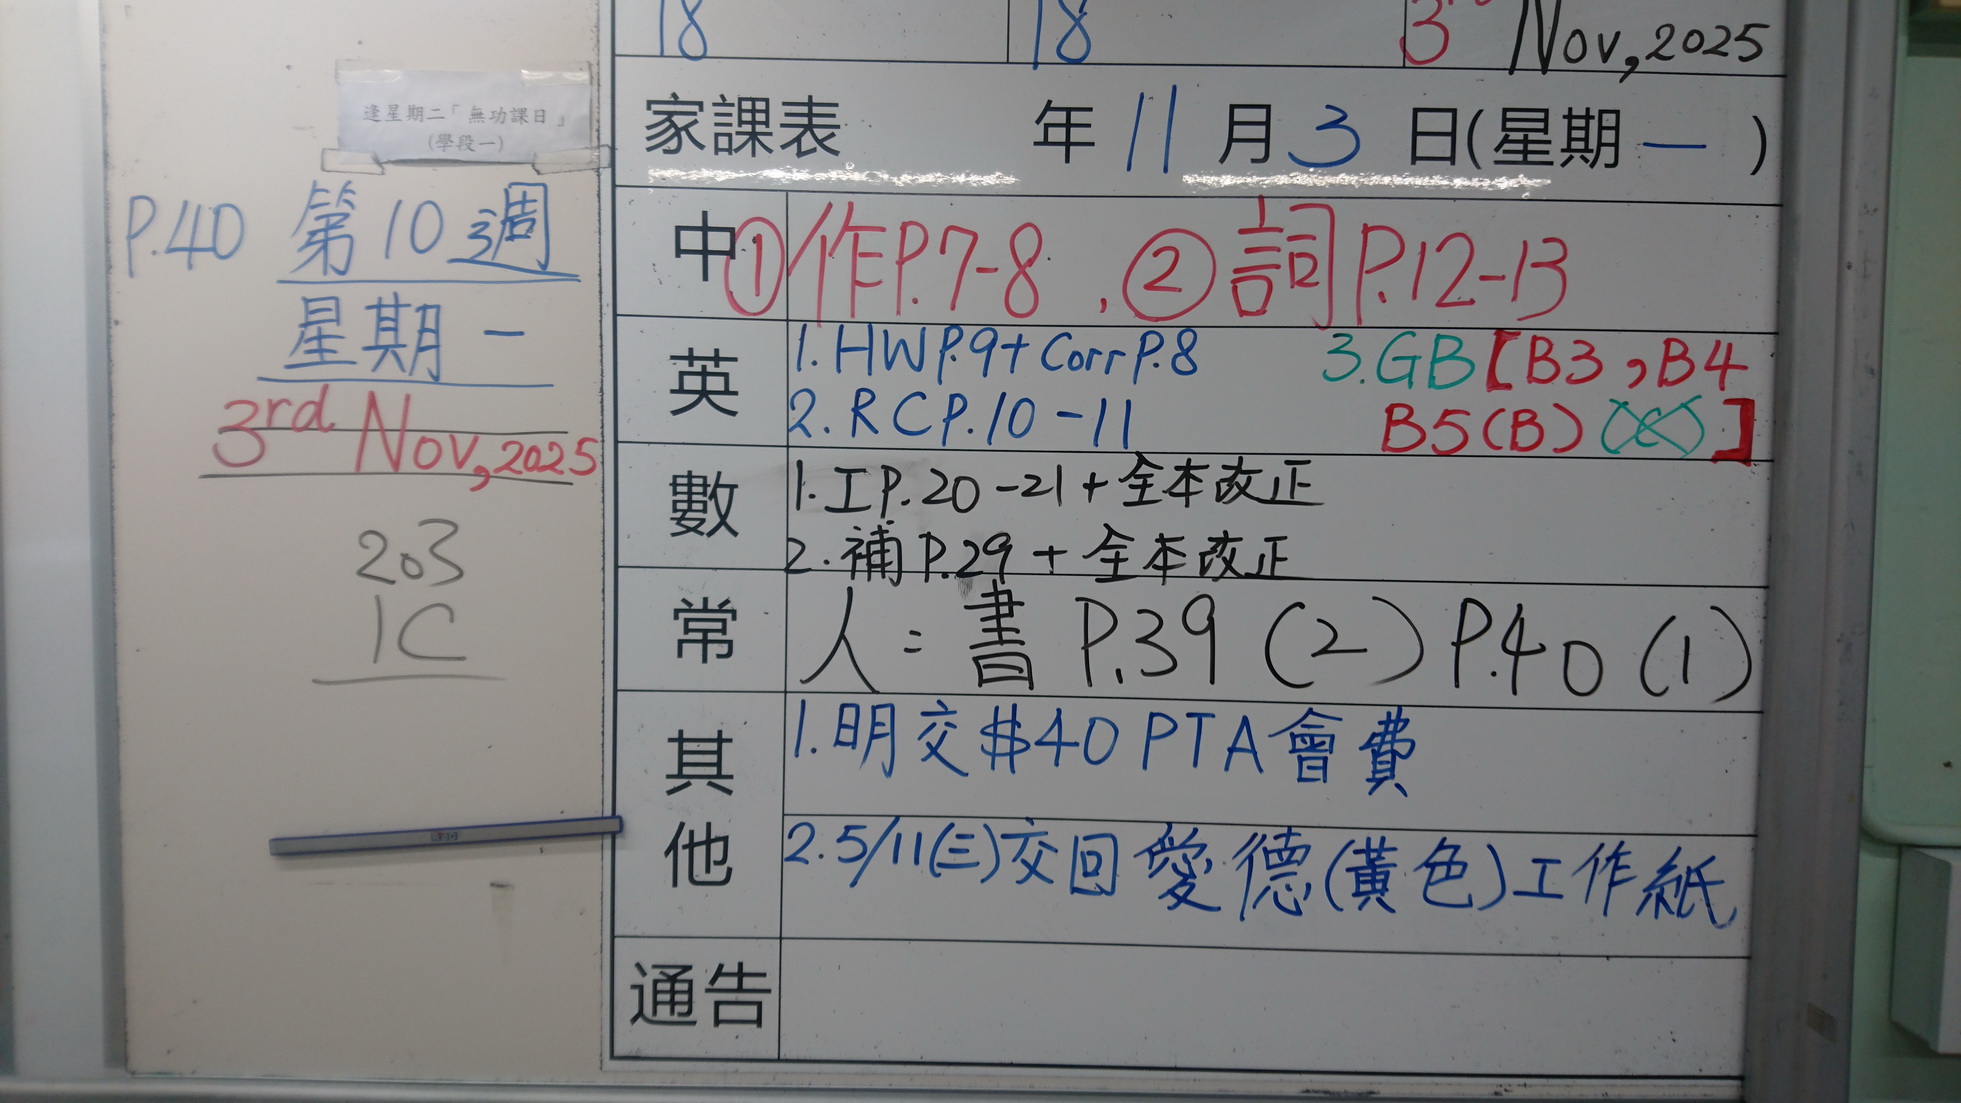 逢星期二「無功課日」
(學段一)
P.40 第10週
星期一
3rd Nov, 2025
203
1C
18 18 3rd Nov, 2025
家課表 年 11 月 3 日(星期 一 )
中 ① 作P.7-8 , ② 詞P.12-13
英 1. HW P.9 + Corr P.8 3. GB [B3, B4
2. RC P.10-11 B5(B) (C) ]
數 1. 工P.20-21 + 全本改正
2. 補P.29 + 全本改正
常 人 : 書 P.39 (2) P.40 (1)
其他 1. 明交$40 PTA會費
2. 5/11(三)交回愛德(黃色)工作紙
通告